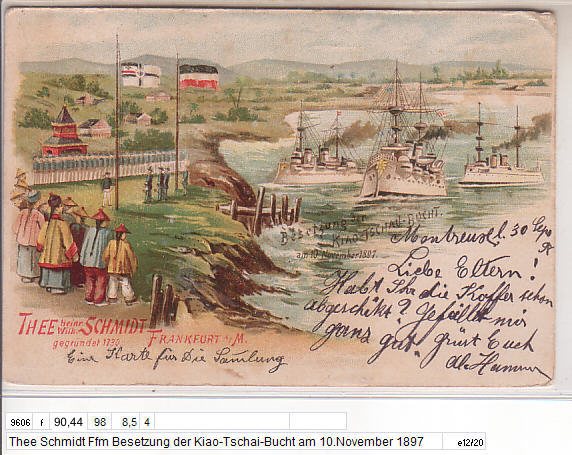 Besetzung der
KIAO-TSCHAU-BUCHT.
am 10. November 1897.
Montreux d. 30 Sept
Liebe Eltern!
Habt Ihr die Koffer schon
abgeschikt? Gefällt mir
ganz gut. Grüst Euch
THEE heinr. Wilh. SCHMIDT
gegründet 1790.
FRANKFURT a/M.
Eine Karte für Die Samlung
9606 f 90,44 98 8,5 4
Thee Schmidt Ffm Besetzung der Kiao-Tschai-Bucht am 10.November 1897 e12/20